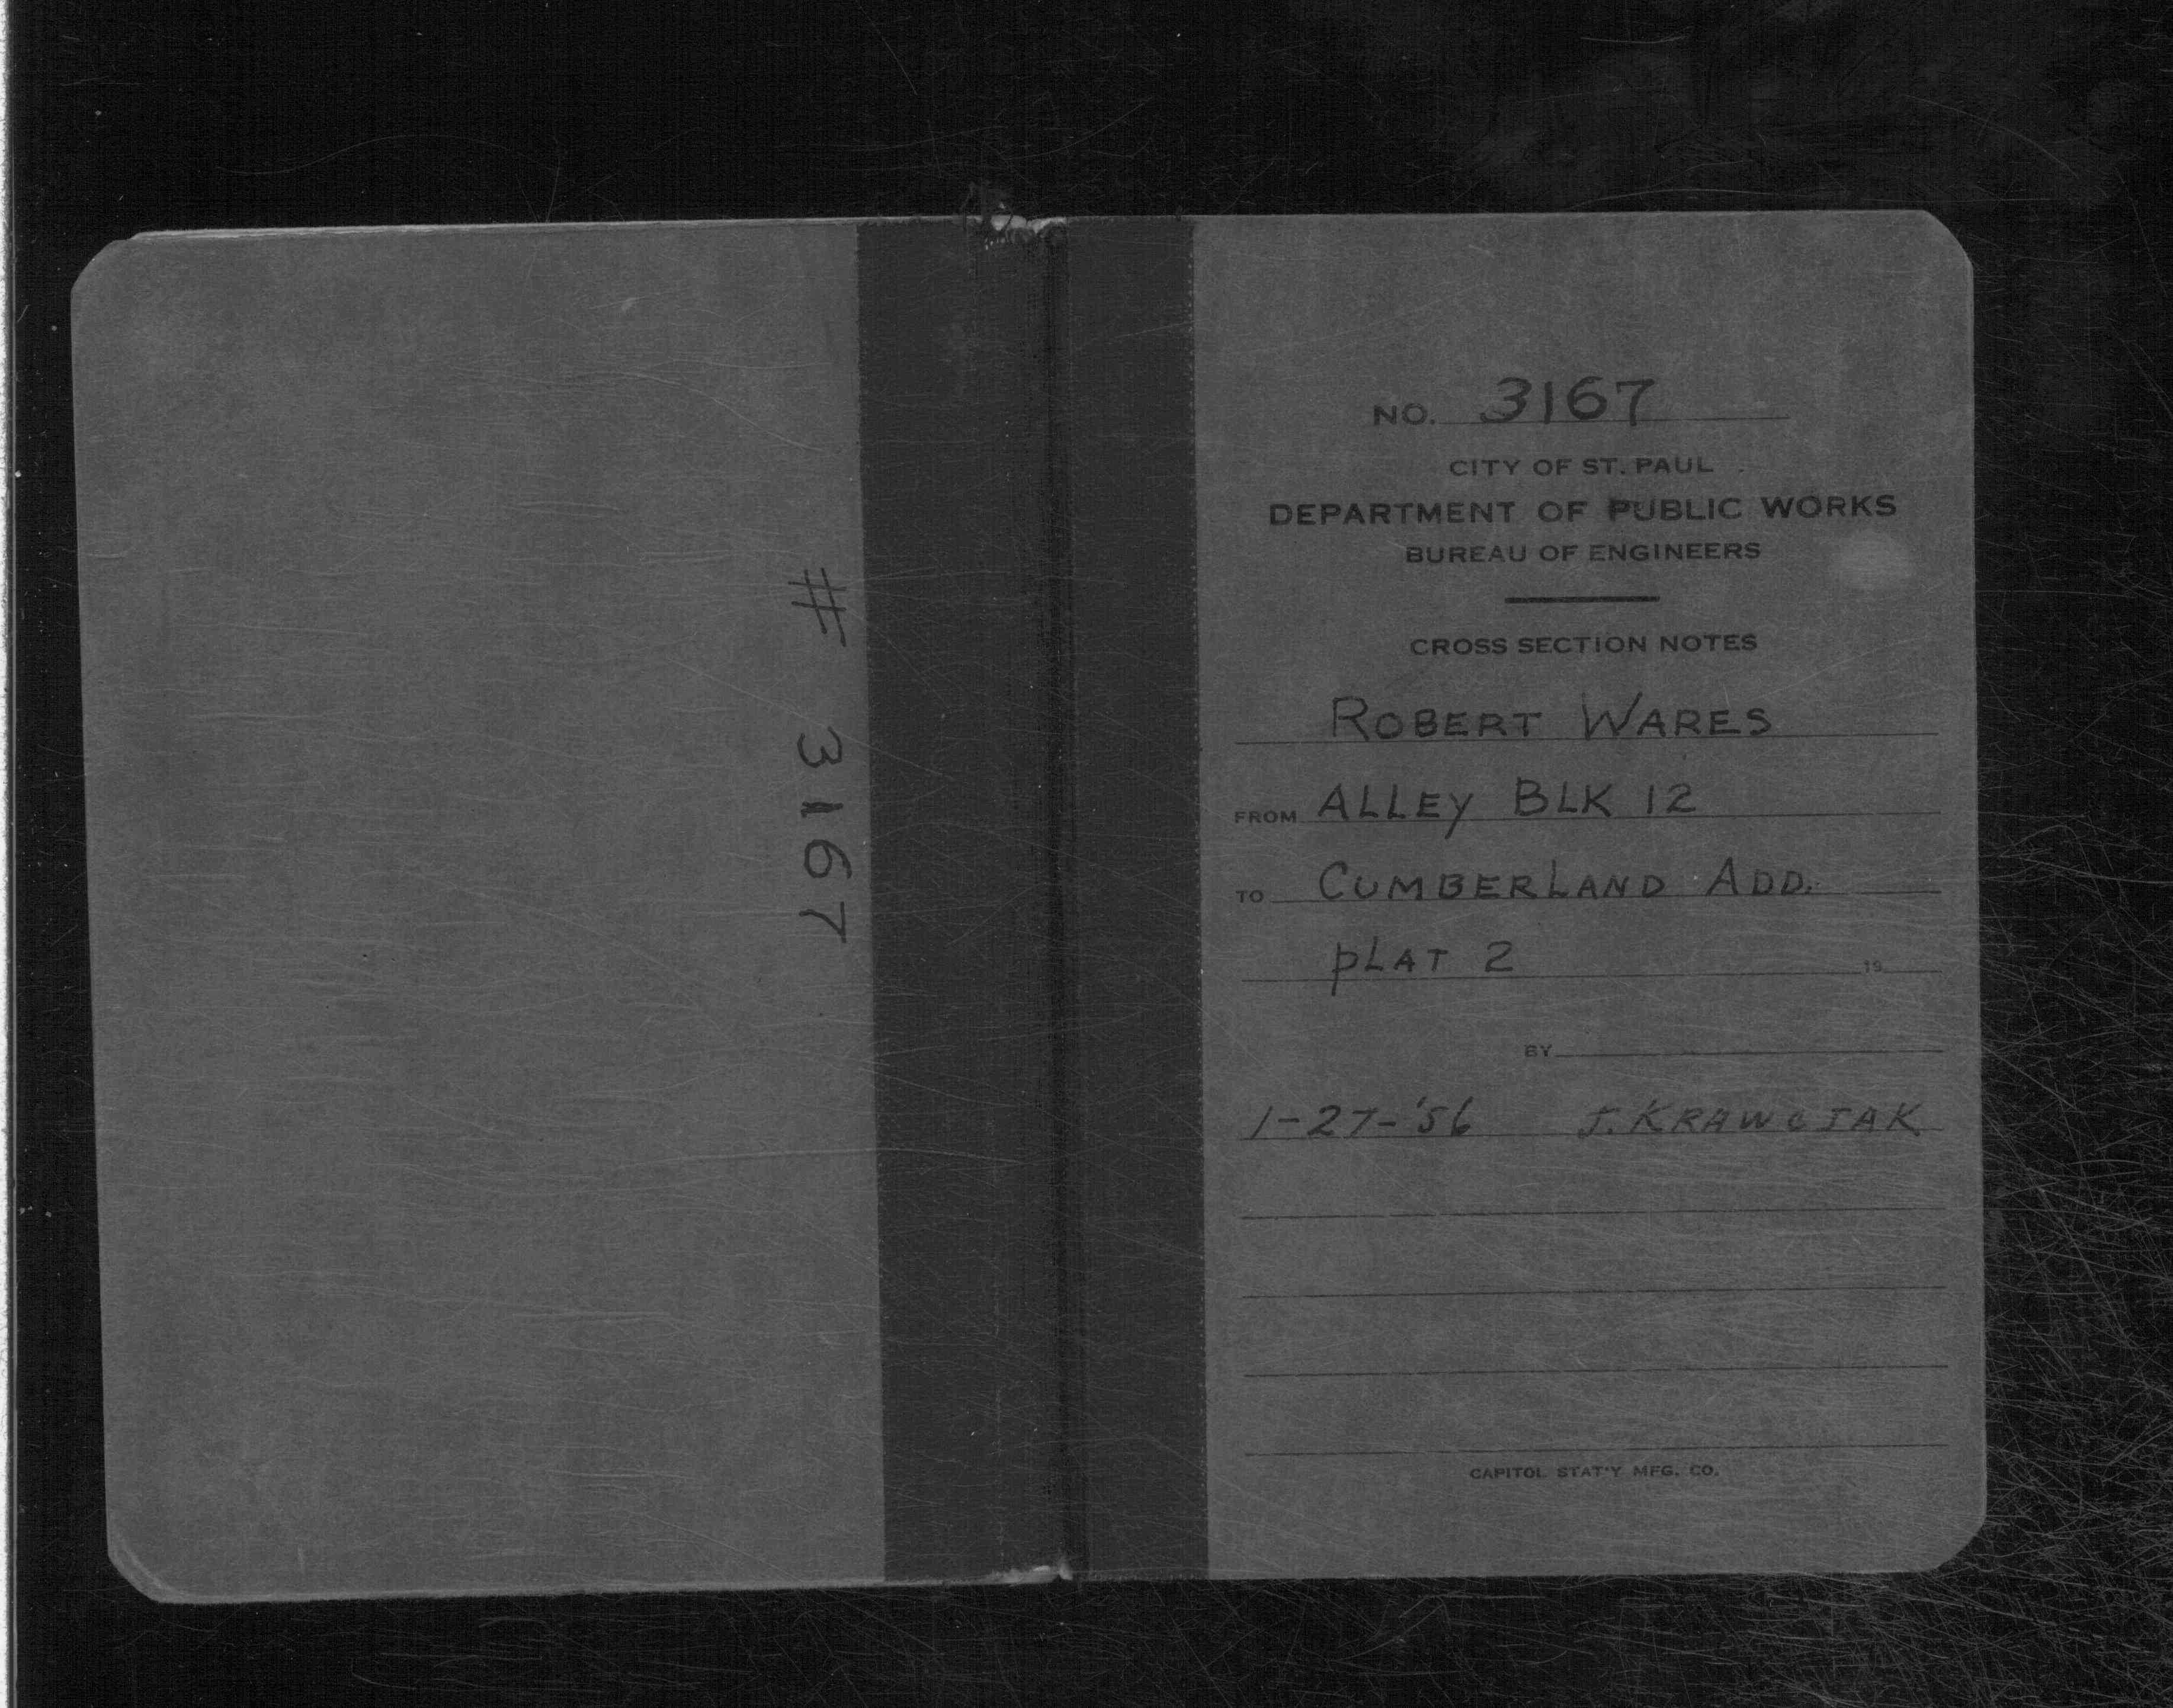 # 3167
NO. 3167
CITY OF ST. PAUL
DEPARTMENT OF PUBLIC WORKS
BUREAU OF ENGINEERS
CROSS SECTION NOTES
ROBERT WARES
FROM ALLEY BLK 12
TO CUMBERLAND ADD.
PLAT 2 19
BY
1-27-'56 J. KRAWCIAK
CAPITOL STAT'Y MFG. CO.